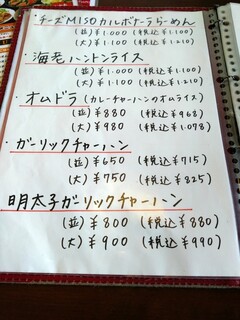 ・チーズMISOカルボナーララーめん
(並)¥1.000 (税込¥1.100)
(大)¥1.100 (税込¥1.210)
・海老ハントンライス
(並)¥1.000 (税込¥1.100)
(大)¥1.100 (税込¥1.210)
・オムドラ (カレーチャーハンのオムライス)
(並)¥880 (税込¥968)
(大)¥980 (税込¥1.078)
・ガーリックチャーハン
(並)¥650 (税込¥715)
(大)¥750 (税込¥825)
・明太子ガーリックチャーハン
(並)¥800 (税込¥880)
(大)¥900 (税込¥990)